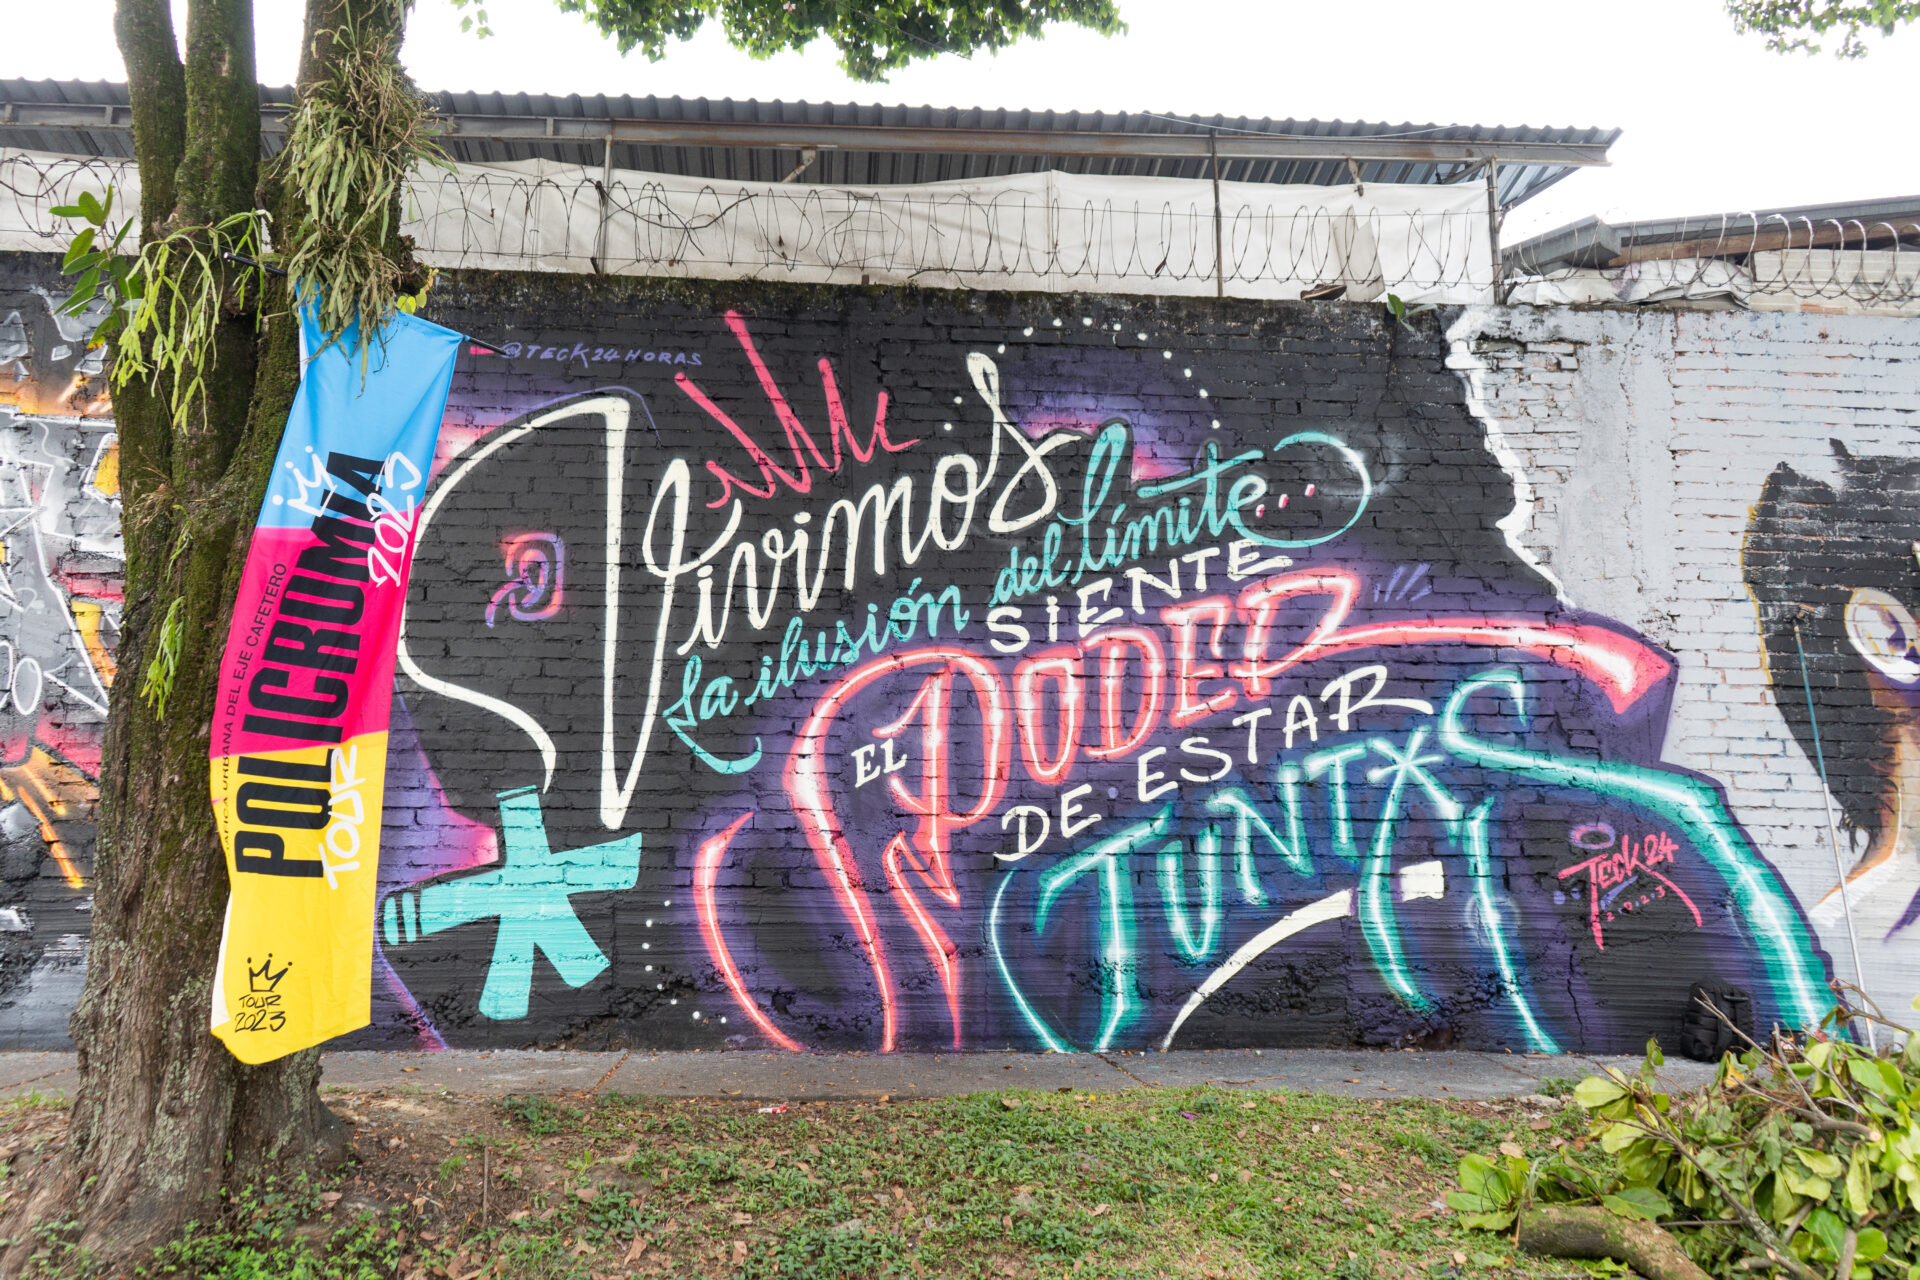 @TECK24HORAS
Vivimos
la ilusión del límite..
SIENTE
EL PODER
DE ESTAR
JUNTXS
TECK24
2.0.2.3
POLICROMIA
2023
GRÁFICA URBANA DEL EJE CAFETERO
TOUR
TOUR
2023